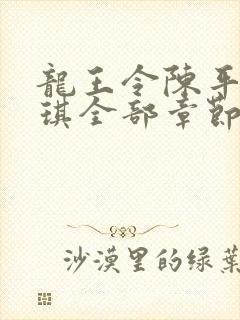 龍王令陳平
琪全部章節
沙漠里的绿葉